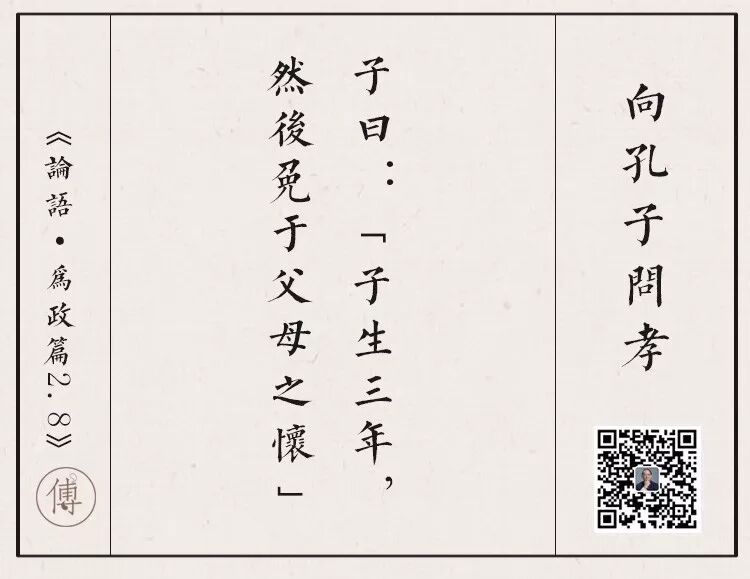 向孔子問孝
子曰：「子生三年，
然後免于父母之懷」
《論語·爲政篇2.8》
傅